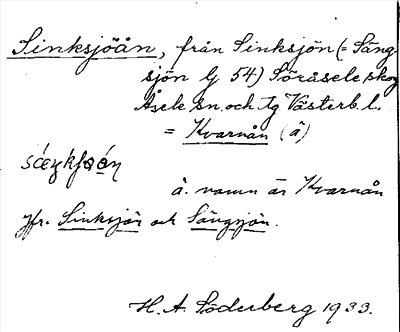 Sinksjöån, från Sinksjön (= Säng-
sjön G 54) Söråsele skog
Åsele sn. och tg Västerb. l.
= Kvarnån (å)
å. namn är Kvarnån
Jfr. Sinksjön och Sängsjön.
H. A. Söderberg 1933.